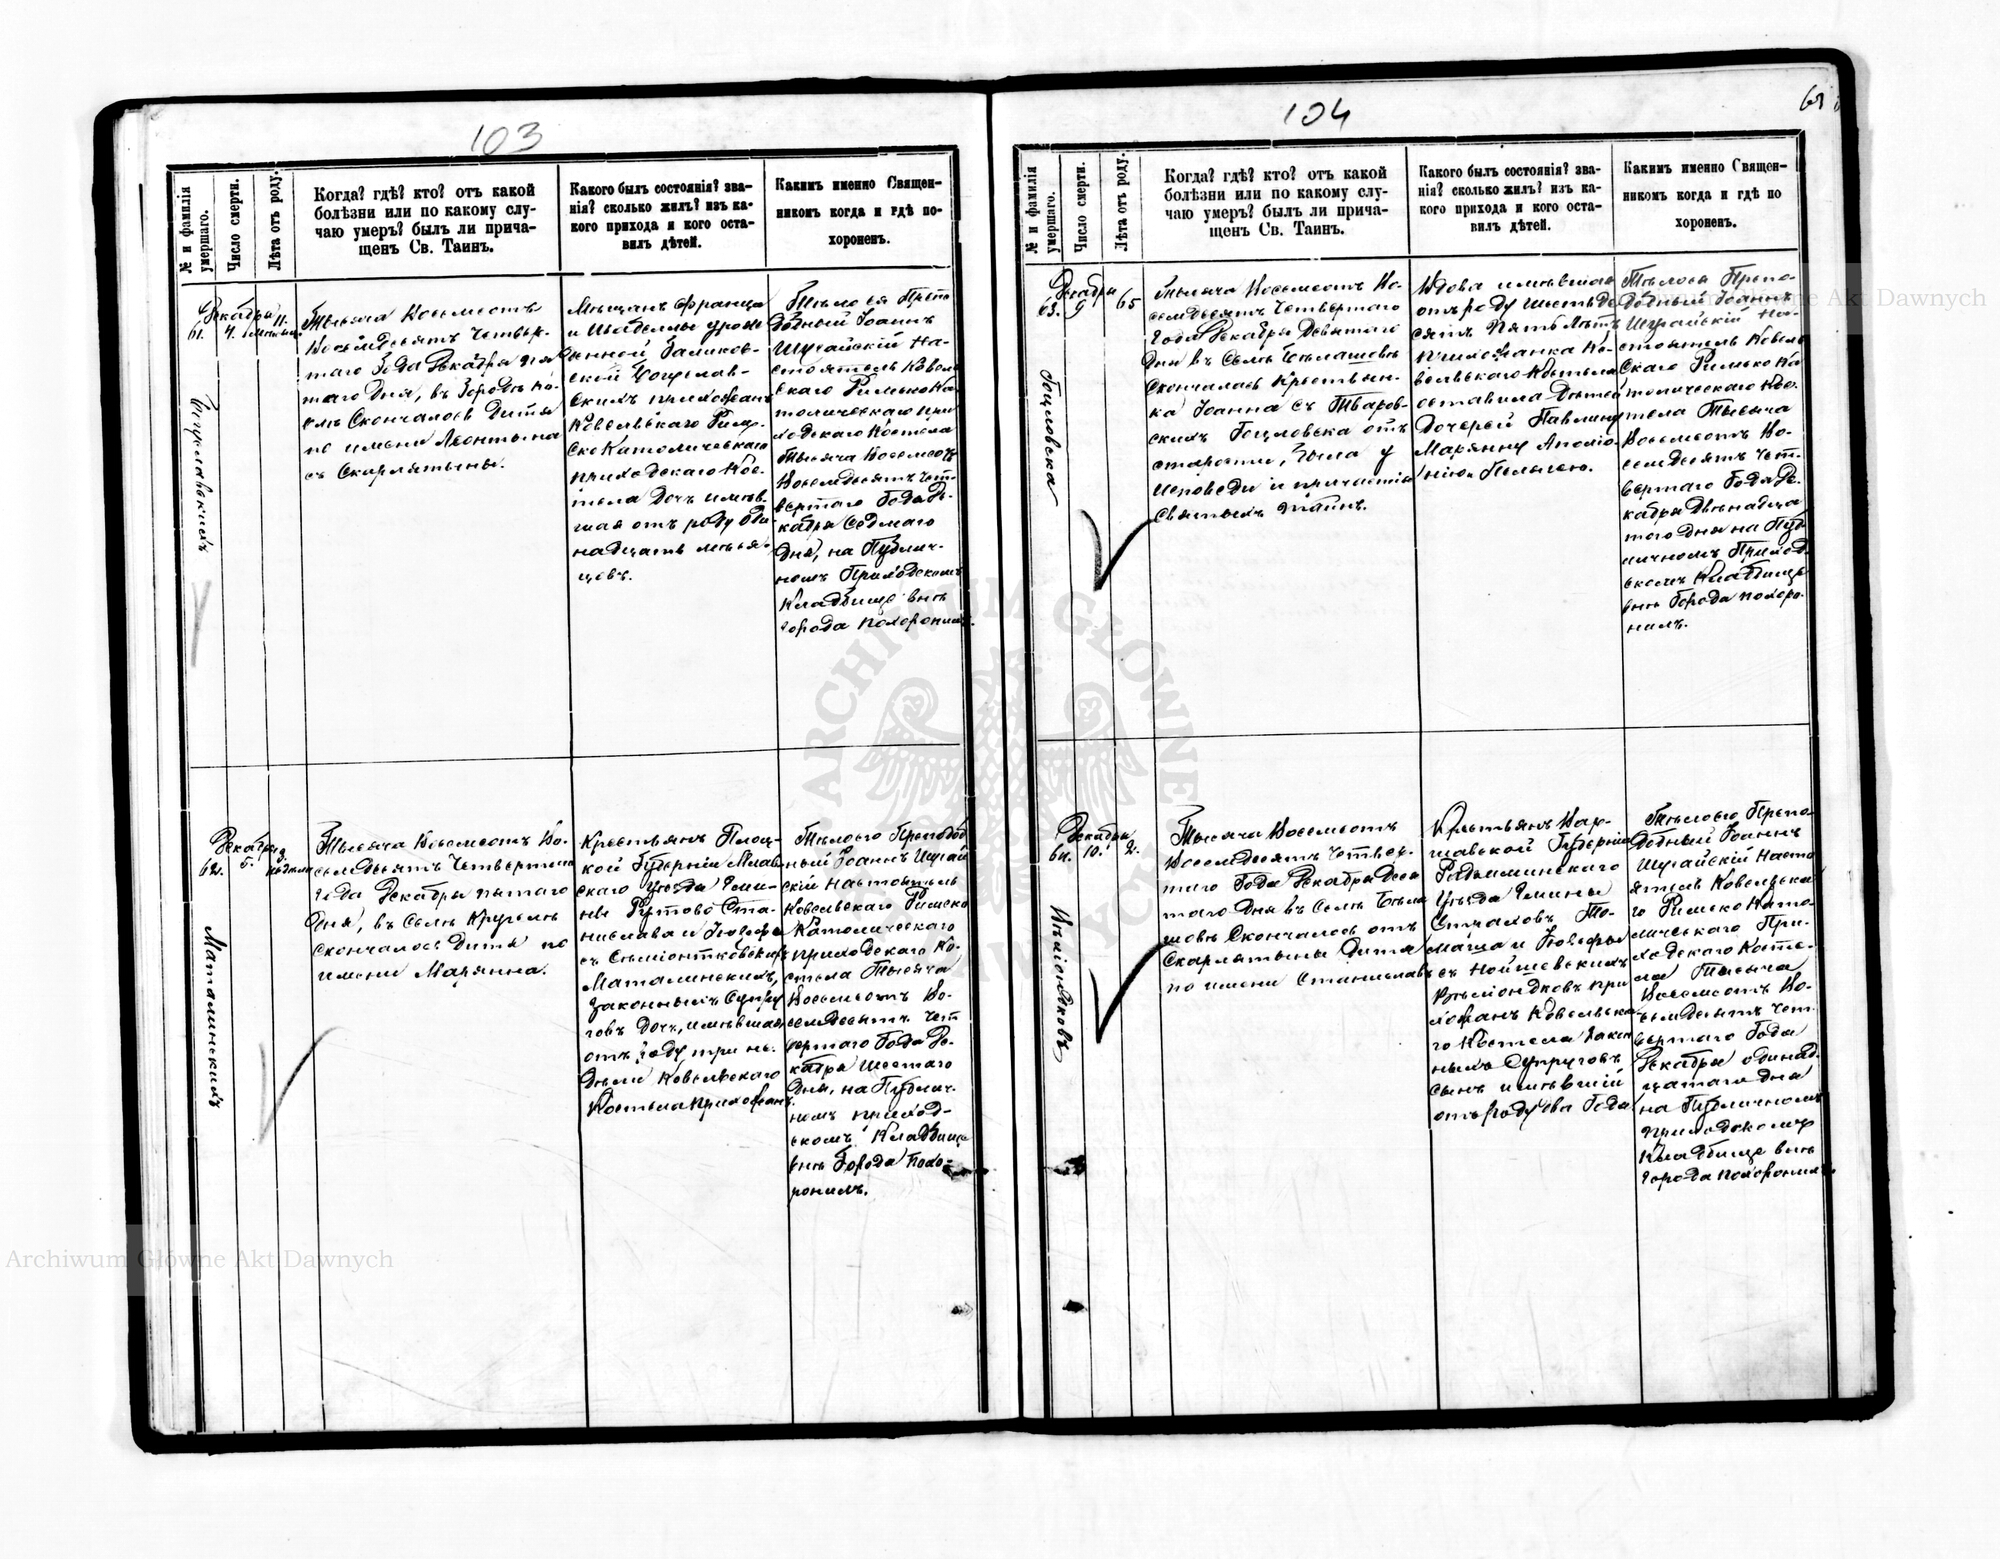 103
№ и фамилія умершаго.
Число смерти.
Лѣта отъ роду.
Когда? гдѣ? кто? отъ какой
болѣзни или по какому слу-
чаю умеръ? былъ ли прича-
щенъ Св. Таинъ.
Какого былъ состоянія? зва-
нія? сколько жилъ? изъ ка-
кого прихода и кого оста-
вилъ дѣтей.
Какимъ именно Священ-
никомъ когда и гдѣ по-
хороненъ.
Декабря
61.
4.
11.
Тысяча восемсотъ
восемдесятъ четвер-
таго Года Декабря
таго Дня, въ
скончалось Дитя
по имени Леонтына
съ Скарлятыны.
Мѣщанъ Франца
и Изабеллы урож
денной
прихожанъ
Ковельскаго Рим-
ско Католическаго
приходскаго Кос-
тела Дочь имѣв-
шая отъ роду оди
надцать мѣся-
цевъ.
Тѣло ея Препо
добный Іоаннъ
Шугайскій На-
стоятель Ковель
скаго Римско Ка
толическаго при
ходскаго Костела
Тысяча восемсотъ
восемдесятъ чет-
вертаго Года Де-
кабря седмаго
Дня, на Публич-
номъ Приходскомъ
Кладбище внѣ
города похоронилъ.
Декабря
62.
5.
3
недѣли
Маталинскихъ
Тысяча восемсотъ во-
семдесятъ четвертаго
Года Декабря пятаго
Дня, въ Селѣ
скончалось Дитя по
имени Марянна.
Крестьянъ Плоц-
кой Губерніи Млав
скаго уѣзда Гми-
ны Ста-
нислава и Іозефы
съ
Маталинскихъ,
законныхъ Супру
говъ Дочь, имѣвшая
отъ роду три не-
дѣли Ковельскаго
Костела прихожанъ.
Тѣло его Преподоб
ный Іоаннъ Шугай
скій Настоятель
Ковельскаго Римско
Католическаго
приходскаго Ко-
стела Тысяча
восемсотъ во-
семдесятъ чет
вертаго Года Де-
кабря шестаго
Дня, на Публич-
номъ приход-
скомъ Кладбище
внѣ Города похо-
ронилъ.
104
№ и фамилія умершаго.
Число смерти.
Лѣта отъ роду.
Когда? гдѣ? кто? отъ какой
болѣзни или по какому слу-
чаю умеръ? былъ ли прича-
щенъ Св. Таинъ.
Какого былъ состоянія? зва-
нія? сколько жилъ? изъ ка-
кого прихода и кого оста-
вилъ дѣтей.
Какимъ именно Священ-
никомъ когда и гдѣ по
хороненъ.
Декабря
63.
9
65
Гоцловска
Тысяча восемсотъ во-
семдесятъ четвертаго
Года Декабря Девятаго
Дня въ Селѣ Бѣлашовѣ
скончалась Крестьян-
ка Іоанна съ Тваров-
скихъ Гоцловска отъ
старости, была у
исповеди и причастія
святыхъ тайнъ.
Вдова имѣвшая
отъ роду шестьде
сятъ пять лѣтъ
прихожанка Ко-
вельскаго Костела
оставила Дѣтей
Дочерей Павлину
Марянну Аполо-
нію
Тѣло ея Препо-
добный Іоаннъ
Шугайскій На-
стоятель Ковель
скаго Римско Ка
толическаго Кос-
тела Тысяча
восемсотъ во-
семдесятъ чет-
вертаго Года Де-
кабря двѣнадца
таго Дня на Пуб
личномъ Приход
скомъ Кладбище
внѣ Города похоро-
нилъ.
Декабря
64.
10.
2.
Тысяча восемсотъ
восемдесятъ четвер-
таго Года Декабря Деся
таго Дня въ Селѣ Бѣла
шовѣ скончалось отъ
Скарлятыны Дитя
по имени Станиславъ
Крестьянъ Вар-
шавской Губерніи
Радиминскаго
Уѣзда Гмины
Страховъ То-
маша и Іозефы
съ
при
хожанъ Ковельска
го Костела закон
ныхъ Супруговъ
сынъ имѣвшій
отъ роду два Года
Тѣло его Препо-
добный Іоаннъ
Шугайскій Насто
ятель Ковельска
го Римско Като-
лическаго При-
ходскаго Косте-
ла Тысяча
восемсотъ во-
семдесятъ чет-
вертаго Года
Декабря одинад-
цатаго Дня
на Публичномъ
приходскомъ
Кладбище внѣ
города похоронилъ.
Archiwum Główne Akt Dawnych
Archiwum Główne Akt Dawnych
ARCHIWUM GŁÓWNE